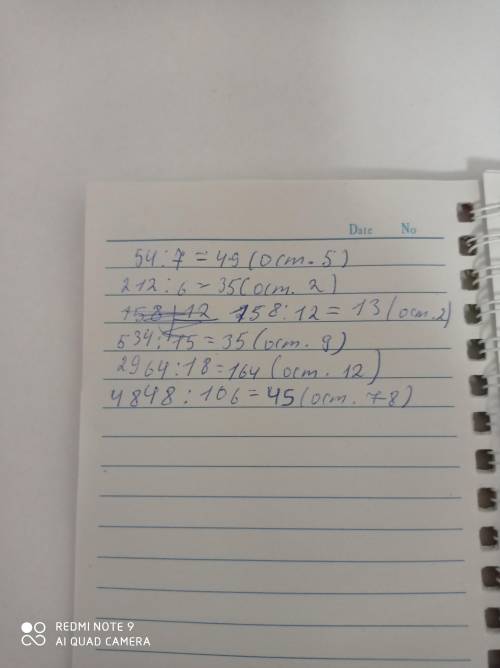 Date No
54:7=49(ост.5)
212:6=35(ост.2)
158 12 158:12=13(ост.2)
534:15=35(ост.9)
2964:18=164(ост.12)
4848:106=45(ост.78)
REDMI NOTE 9
AI QUAD CAMERA